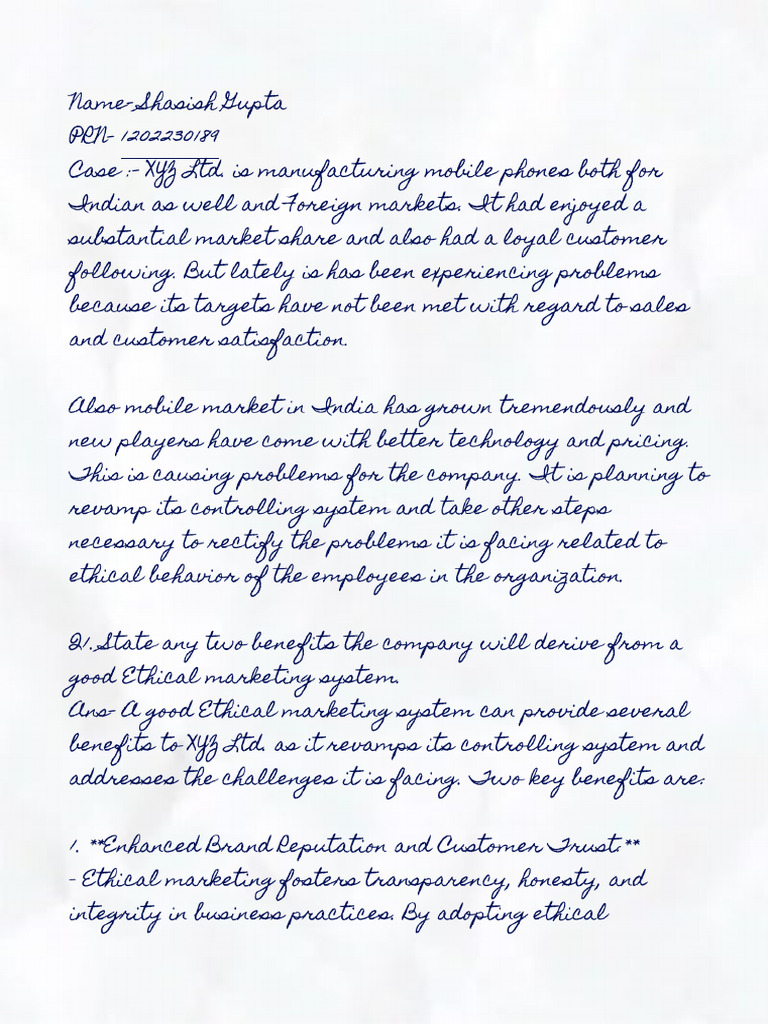 Name-Shasish Gupta
PRN- 1202230189
Case :- XYZ Ltd. is manufacturing mobile phones both for
Indian as well and Foreign markets. It had enjoyed a
substantial market share and also had a loyal customer
following. But lately is has been experiencing problems
because its targets have not been met with regard to sales
and customer satisfaction.
Also mobile market in India has grown tremendously and
new players have come with better technology and pricing.
This is causing problems for the company. It is planning to
revamp its controlling system and take other steps
necessary to rectify the problems it is facing related to
ethical behavior of the employees in the organization.
Q1. State any two benefits the company will derive from a
good Ethical marketing system.
Ans- A good Ethical marketing system can provide several
benefits to XYZ Ltd. as it revamps its controlling system and
addresses the challenges it is facing. Two key benefits are:
1. **Enhanced Brand Reputation and Customer Trust:**
- Ethical marketing fosters transparency, honesty, and
integrity in business practices. By adopting ethical